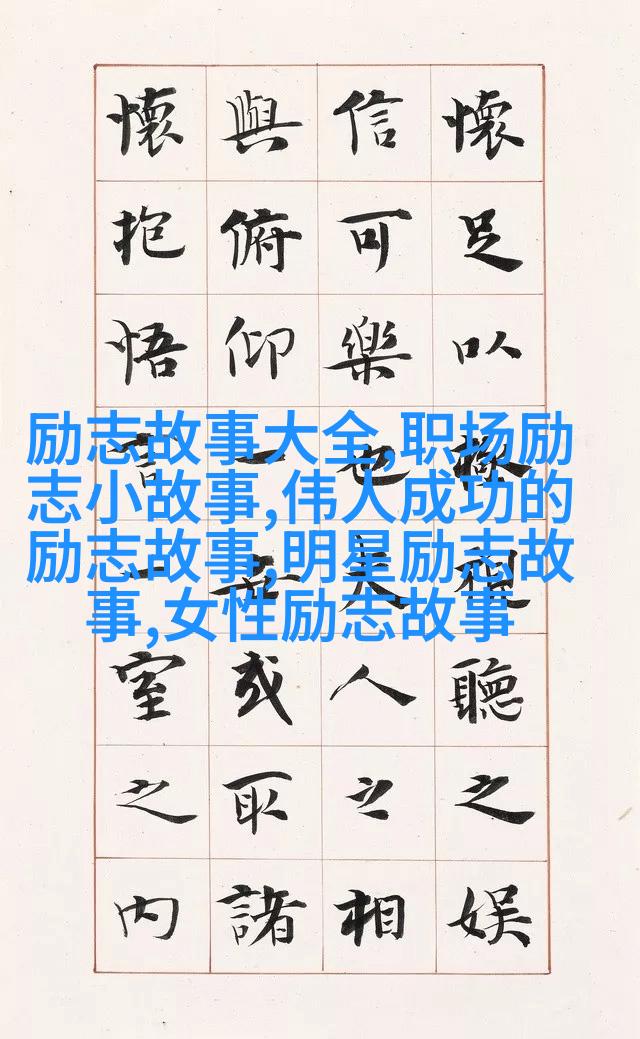 懷足以極視聽之娛
信可樂也夫人之相
與俯仰一世或取諸
懷抱悟言一室之內
励志故事大全,职场励
志小故事,伟人成功的
励志故事,明星励志故
事,女性励志故事